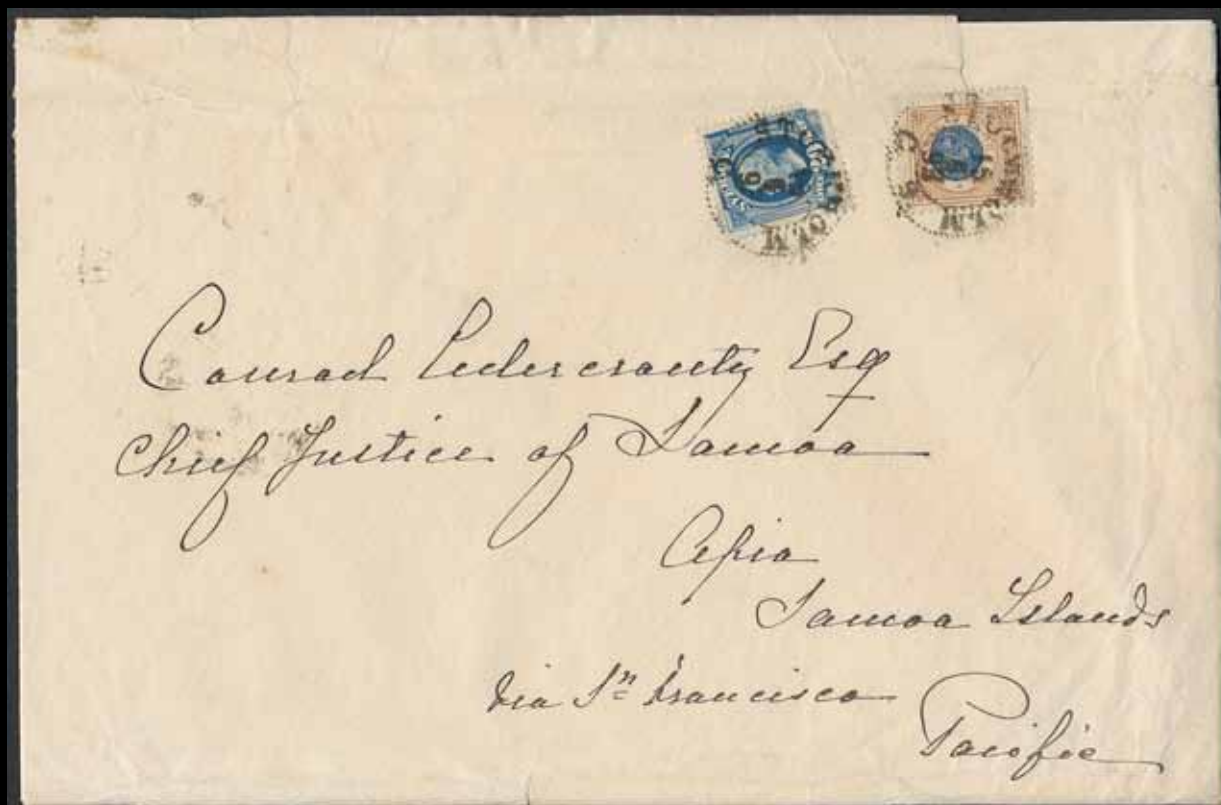 STOCKHOLM
STOCKHOLM
Conrad Cedercrantz Esq
Chief Justice of Samoa
Apia
Samoa Islands
via Sn Francisco
Pacific